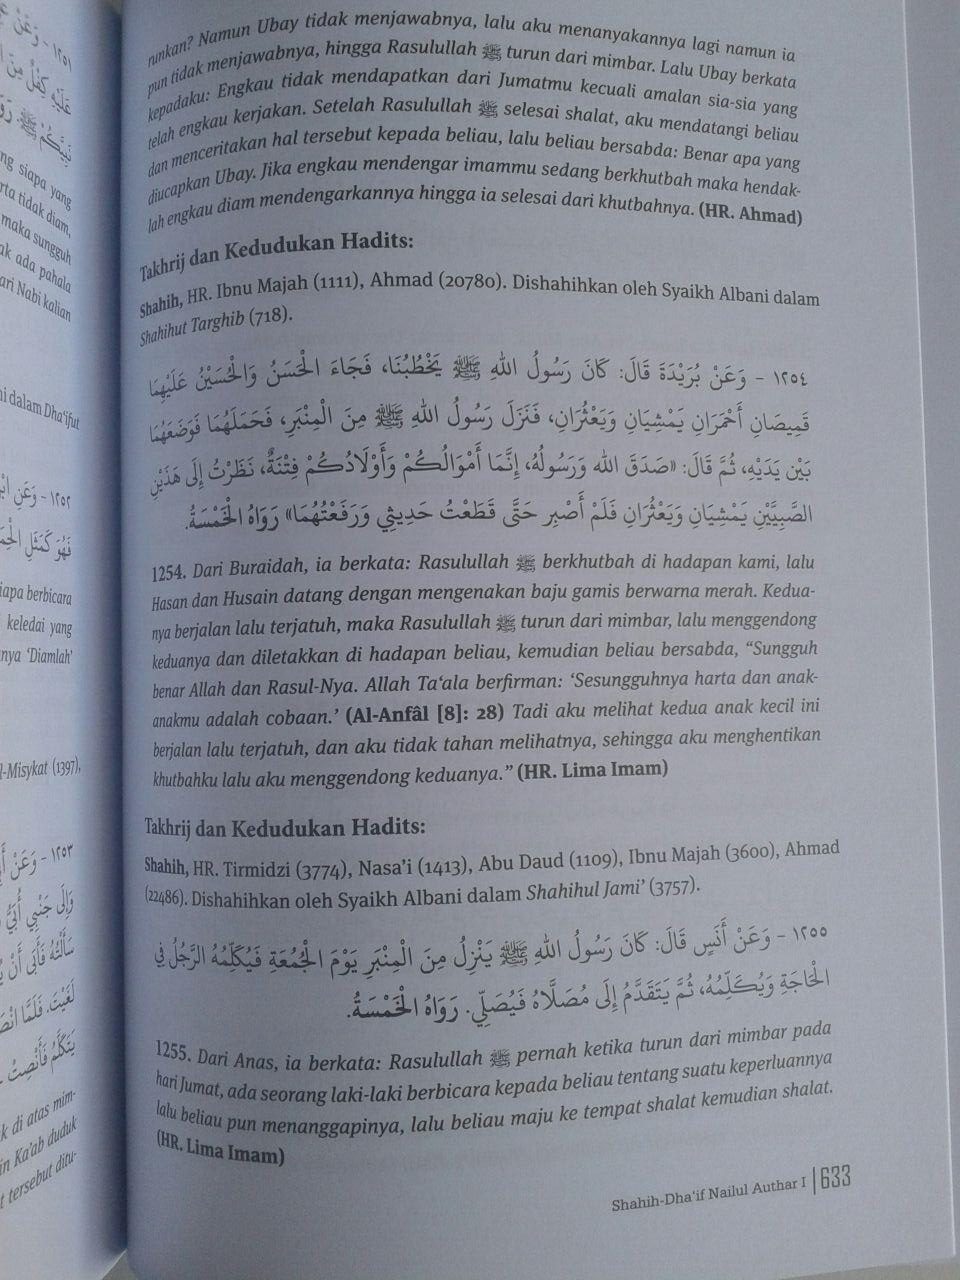 نَبِيِّكُمْ ﷺ
ng siapa yang
rta tidak diam,
maka sungguh
ak ada pahala
ari Nabi kalian
ni dalam Dha'ifut
١٢٥٢ - وَعَنِ
فَهُوَ كَمَثَلِ
iapa berbicara
keledai yang
nya 'Diamlah'
l-Misykat (1397),
١٢٥٣ - وَعَنْ
وَإِلَى جَنْبِي أُبَيُّ
سَأَلْتُهُ فَأَبَى أَنْ
يَتَكَلَّمُ فَأَنْصِتْ
k di atas mim-
in Ka'ab duduk
t tersebut ditu-
runkan? Namun Ubay tidak menjawabnya, lalu aku menanyakannya lagi namun ia
pun tidak menjawabnya, hingga Rasulullah ﷺ turun dari mimbar. Lalu Ubay berkata
kepadaku: Engkau tidak mendapatkan dari Jumatmu kecuali amalan sia-sia yang
telah engkau kerjakan. Setelah Rasulullah ﷺ selesai shalat, aku mendatangi beliau
dan menceritakan hal tersebut kepada beliau, lalu beliau bersabda: Benar apa yang
diucapkan Ubay. Jika engkau mendengar imammu sedang berkhutbah maka hendak-
lah engkau diam mendengarkannya hingga ia selesai dari khutbahnya. (HR. Ahmad)
Takhrij dan Kedudukan Hadits:
Shahih, HR. Ibnu Majah (1111), Ahmad (20780). Dishahihkan oleh Syaikh Albani dalam
Shahihut Targhib (718).
١٢٥٤ - وَعَنْ بُرَيْدَةَ قَالَ: كَانَ رَسُولُ اللهِ ﷺ يَخْطُبُنَا، فَجَاءَ الْحَسَنُ وَالْحُسَيْنُ عَلَيْهِمَا
قَمِيصَانِ أَحْمَرَانِ يَمْشِيَانِ وَيَعْثُرَانِ، فَنَزَلَ رَسُولُ اللهِ ﷺ مِنَ الْمِنْبَرِ، فَحَمَلَهُمَا فَوَضَعَهُمَا
بَيْن يَدَيْهِ، ثُمَّ قَالَ: «صَدَقَ الله وَرَسُولُهُ، إِنَّمَا أَمْوَالُكُمْ وَأَوْلَادُكُمْ فِتْنَةٌ، نَظَرْتُ إِلَى هَذَيْنِ
الصَّبِيَّيْنِ يَمْشِيَانِ وَيَعْثُرَانِ فَلَمْ أَصْبِر حَتَّى قَطَعْتُ حَدِيثِي وَرَفَعْتُهُمَا» رَوَاهُ الْخَمْسَةُ.
1254. Dari Buraidah, ia berkata: Rasulullah ﷺ berkhutbah di hadapan kami, lalu
Hasan dan Husain datang dengan mengenakan baju gamis berwarna merah. Kedua-
nya berjalan lalu terjatuh, maka Rasulullah ﷺ turun dari mimbar, lalu menggendong
keduanya dan diletakkan di hadapan beliau, kemudian beliau bersabda, “Sungguh
benar Allah dan Rasul-Nya. Allah Ta‘ala berfirman: ‘Sesungguhnya harta dan anak-
anakmu adalah cobaan.’ (Al-Anfâl [8]: 28) Tadi aku melihat kedua anak kecil ini
berjalan lalu terjatuh, dan aku tidak tahan melihatnya, sehingga aku menghentikan
khutbahku lalu aku menggendong keduanya.” (HR. Lima Imam)
Takhrij dan Kedudukan Hadits:
Shahih, HR. Tirmidzi (3774), Nasa'i (1413), Abu Daud (1109), Ibnu Majah (3600), Ahmad
(22486). Dishahihkan oleh Syaikh Albani dalam Shahihul Jami’ (3757).
١٢٥٥ - وَعَنْ أَنَسٍ قَالَ: كَانَ رَسُولُ اللهِ ﷺ يَنْزِلُ مِنَ الْمِنْبَرِ يَوْمَ الْجُمُعَةِ فَيُكَلِّمُهُ الرَّجُلُ فِي
الْحَاجَةِ وَيُكَلِّمُهُ، ثُمَّ يَتَقَدَّمُ إِلَى مُصَلَّاهُ فَيُصَلِّي. رَوَاهُ الْخَمْسَةُ.
1255. Dari Anas, ia berkata: Rasulullah ﷺ pernah ketika turun dari mimbar pada
hari Jumat, ada seorang laki-laki berbicara kepada beliau tentang suatu keperluannya
lalu beliau pun menanggapinya, lalu beliau maju ke tempat shalat kemudian shalat.
(HR. Lima Imam)
Shahih-Dha‘if Nailul Authar I | 633